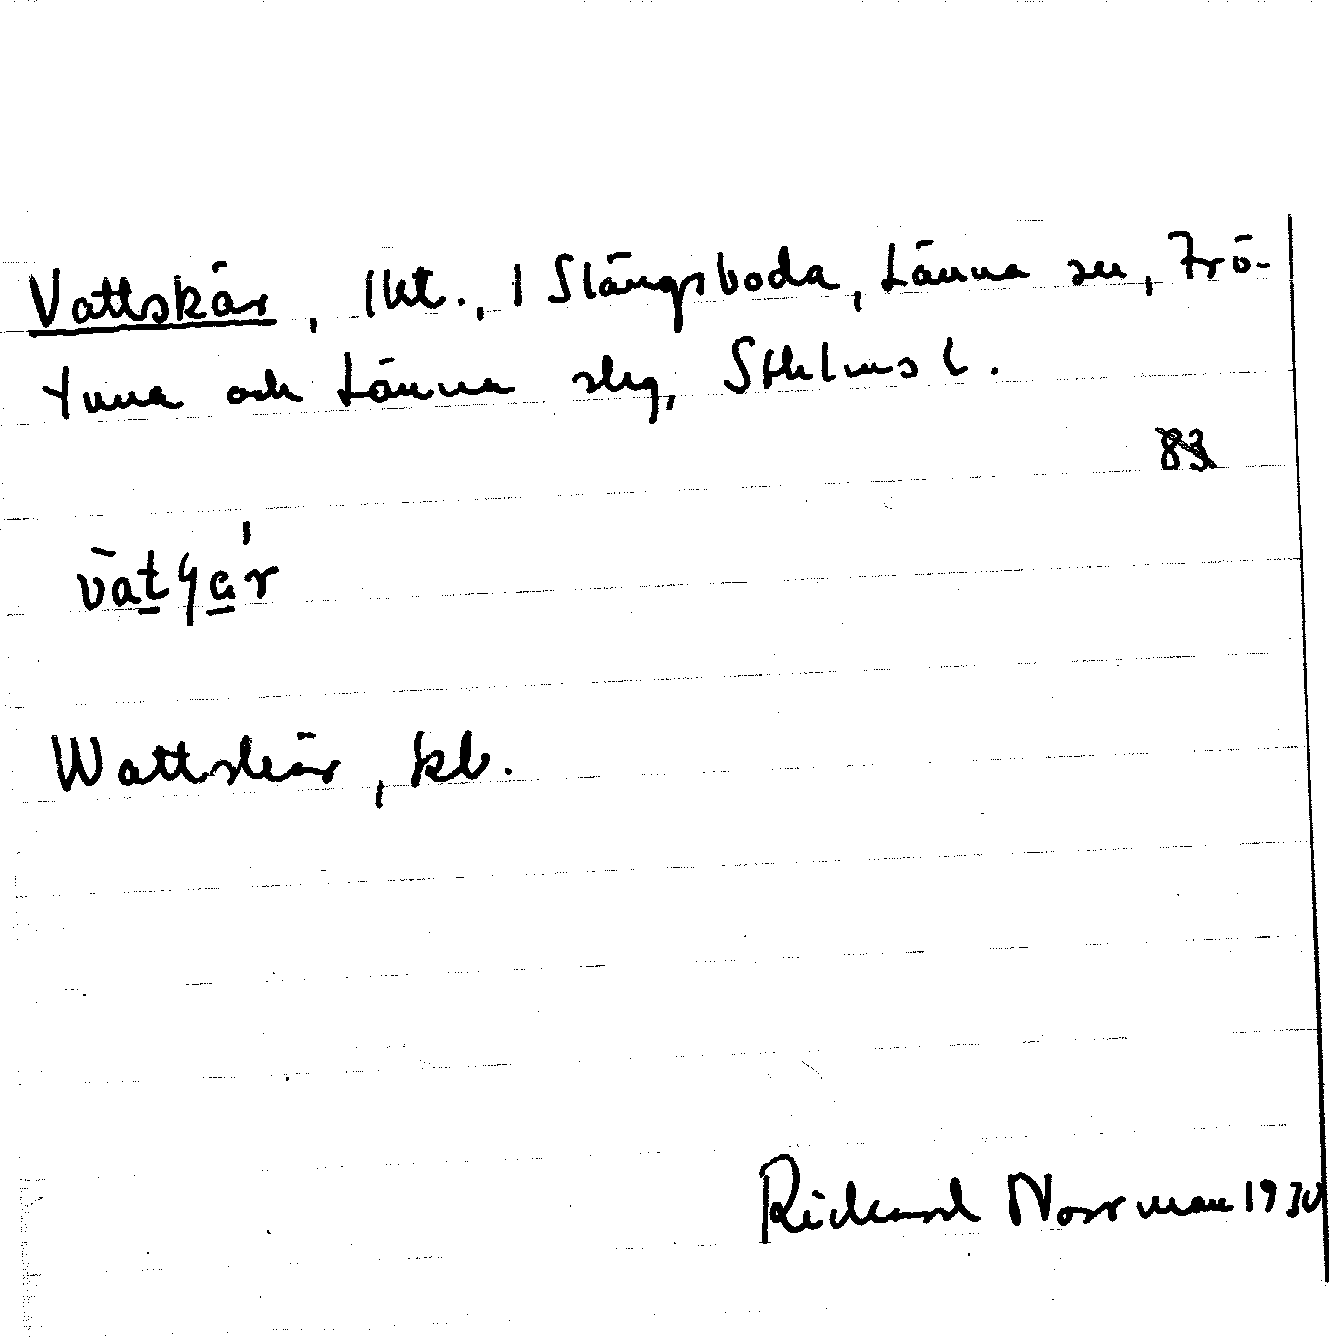 Vattskär, lht., i Slängsboda, Länna sn, Frö-
tuna och Länna slg, Sthlms l.
83
Wattskär, kb.
Rickard Norrman 1930